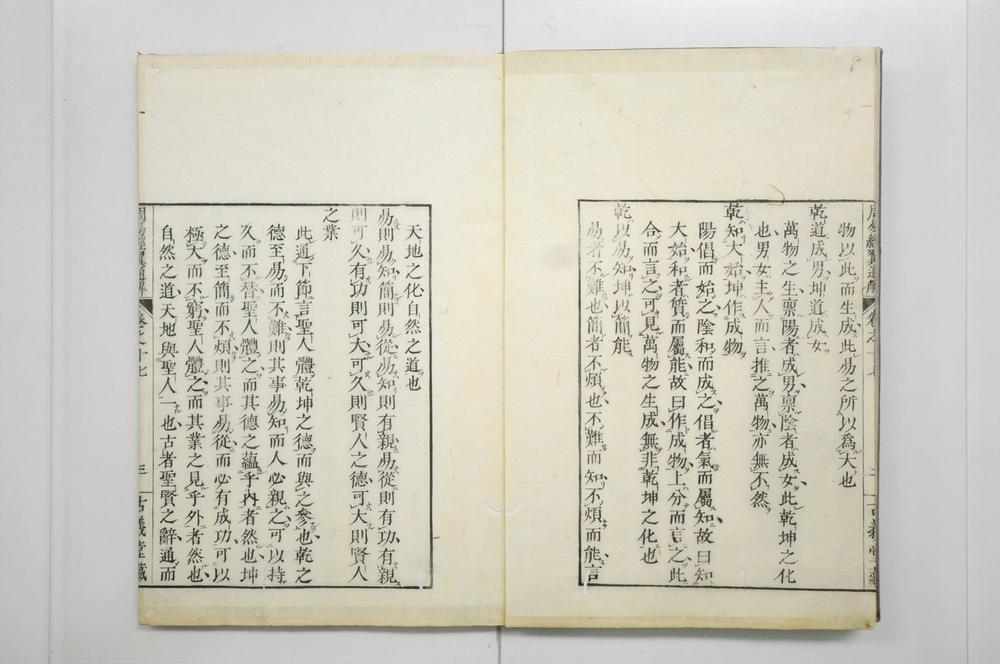 物以此而生成此易之所以爲大也
乾道成男坤道成女
萬物之生禀陽者成男禀陰者成女此乾坤之化
也男女主人而言推之萬物亦無不然
乾知大始坤作成物
陽倡而始之陰和而成之倡者氣而屬知故曰知
大始和者質而屬能故曰作成物上分而言之此
合而言之可見萬物之生成無非乾坤之化也
乾以易知坤以簡能
易者不難也簡者不煩也不難而知不煩而能言
天地之化自然之道也
易則易知簡則易從易知則有親易從則有功有親
則可久有功則可大可久則賢人之德可大則賢人
之業
此通下節言聖人體乾坤之德而與之參也乾之
德至易而不難則其事易知而人必親之可以持
久而不替聖人體之而其德之蘊乎內者然也坤
之德至簡而不煩則其事易從而必有成功可以
極大而不窮聖人體之而其業之見乎外者然也
自然之道天地與聖人一也古者聖賢之辭通而
周易經翼通解 卷之十七 三 古義堂藏